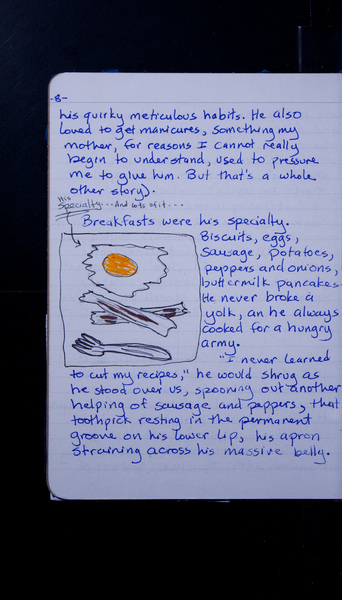 -8-
his quirky meticulous habits. He also
loved to get manicures, something my
mother, for reasons I cannot really
begin to understand, used to pressure
me to give him. But that's a whole
other story).
His
specialty...And lots of it...
Breakfasts were his specialty.
Biscuits, eggs,
sausage, potatoes,
peppers and onions,
buttermilk pancakes.
He never broke a
yolk, an he always
cooked for a hungry
army.
"I never learned
to cut my recipes," he would shrug as
he stood over us, spooning out another
helping of sausage and peppers, that
toothpick resting in the permanent
groove on his lower lip, his apron
straining across his massive belly.